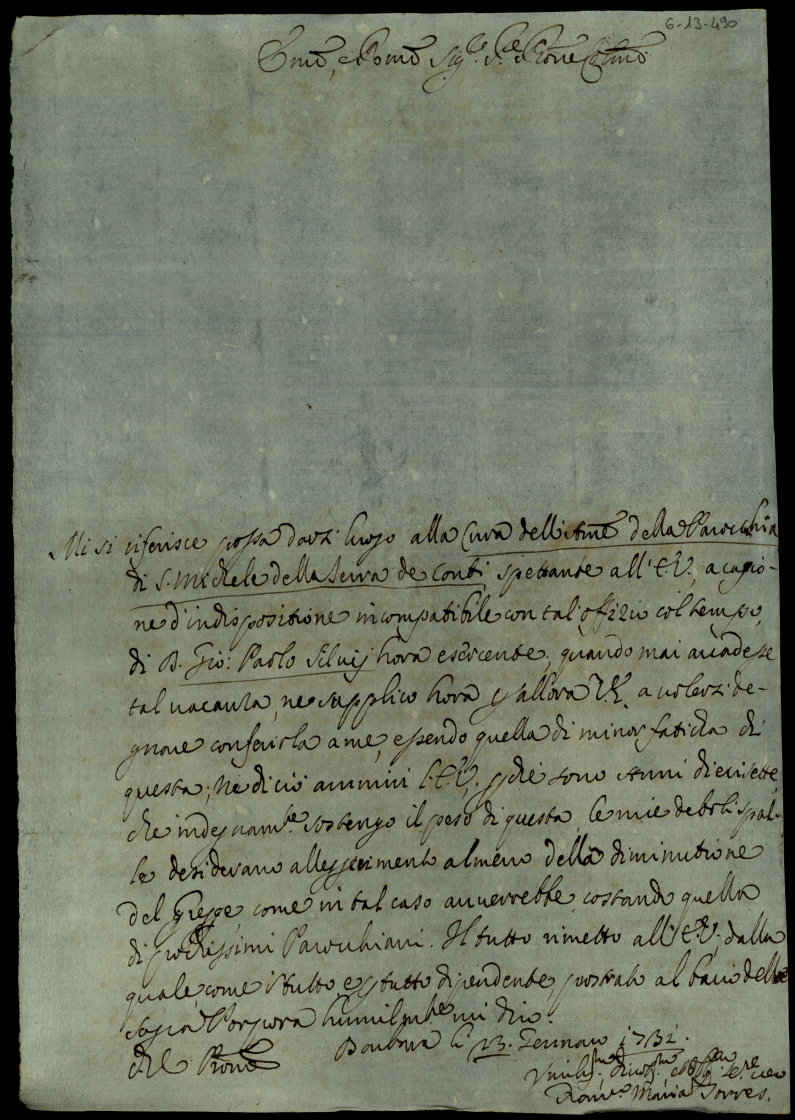 6-13-490
Emō, e Rmō Sig.re P.re Prōne Colmō
Mi si riferisce possa darsi luogo alla Cura dell'Ame della Parochia
di S. Michele della Serra de Conti, spettante all'E.V., a cagio-
ne d'indispositione incompatibile con tal'offizio col tempo,
di D. Gio: Paolo Silvij hora esercente; quando mai accadesse
tal vacanza, ne supplico hora p allora V.E. a volersi de-
gnare conferirla a me, essendo quella di minor faticha di
questa; Ne di ciò ammiri l'E.V., p che sono Anni diecisette,
che indegnam.te sostengo il peso di questa, le mie deboli spal-
le desiderano alleggerimento almeno della diminutione
del gregge, come in tal caso avverrebbe, costando quella
di pochissimi Parochiani. Il tutto rimetto all'E.V. dalla
quale, come in tutto e p tutto dipendente, prostrato al bacio della
sagra Porpora humilm.te mi dico.
Di V.E. Rmā
li 23. Gennaro 1732.
Umiliss.mo Devotiss.mo Obblig.mo Se.re vero
Fran.co Maria Torres.